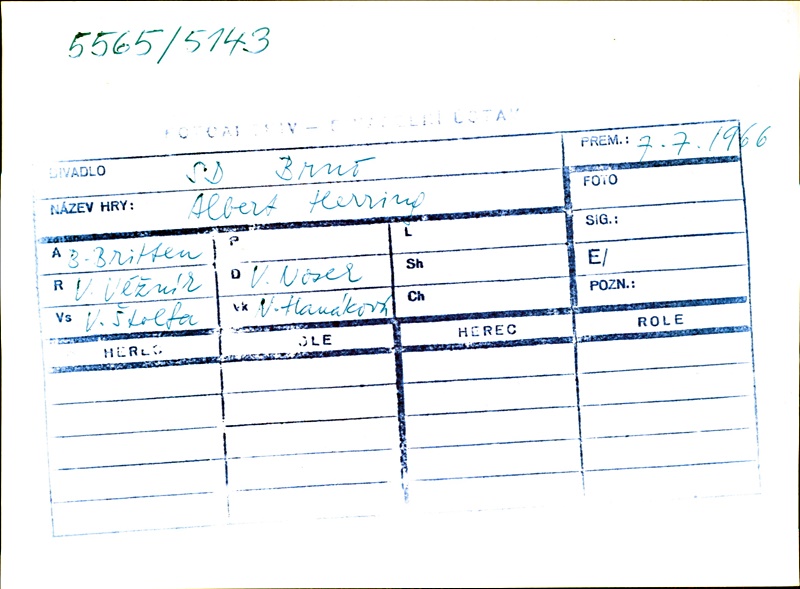 5565/5143
FOTOARCHIV – DIVADELNÍ ÚSTAV
DIVADLO SD Brno PREM.: 7.7.1966
NÁZEV HRY: Albert Herring FOTO
SIG.:
A B. Britten P L
E/
R V. Věžník D V. Nosek Sh
POZN.:
Vs V. Štolfa Vk N. Hanáková Ch
HEREC ROLE HEREC ROLE